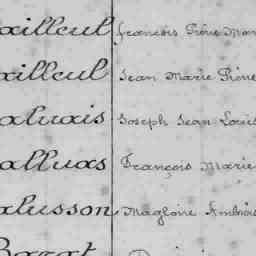 xilleul françois Pierre Mar
xilleul Jean Marie Pierre
aluais Joseph Jean Louis
alluas François Marie
alusson Magloire Ambrois
Bazat